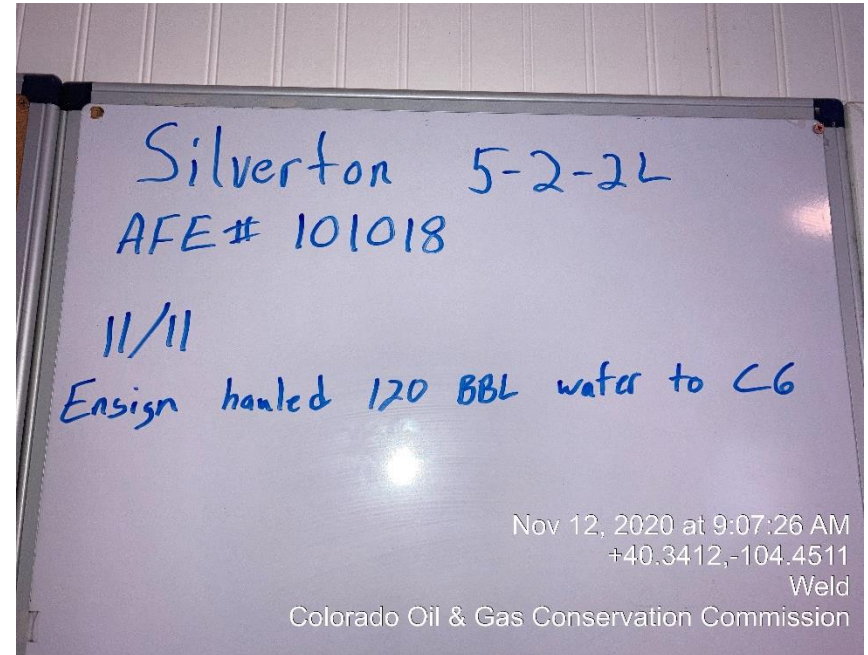 Silverton 5-2-2L
AFE# 101018
11/11
Ensign hauled 120 BBL water to C6
Nov 12, 2020 at 9:07:26 AM
+40.3412,-104.4511
Weld
Colorado Oil & Gas Conservation Commission